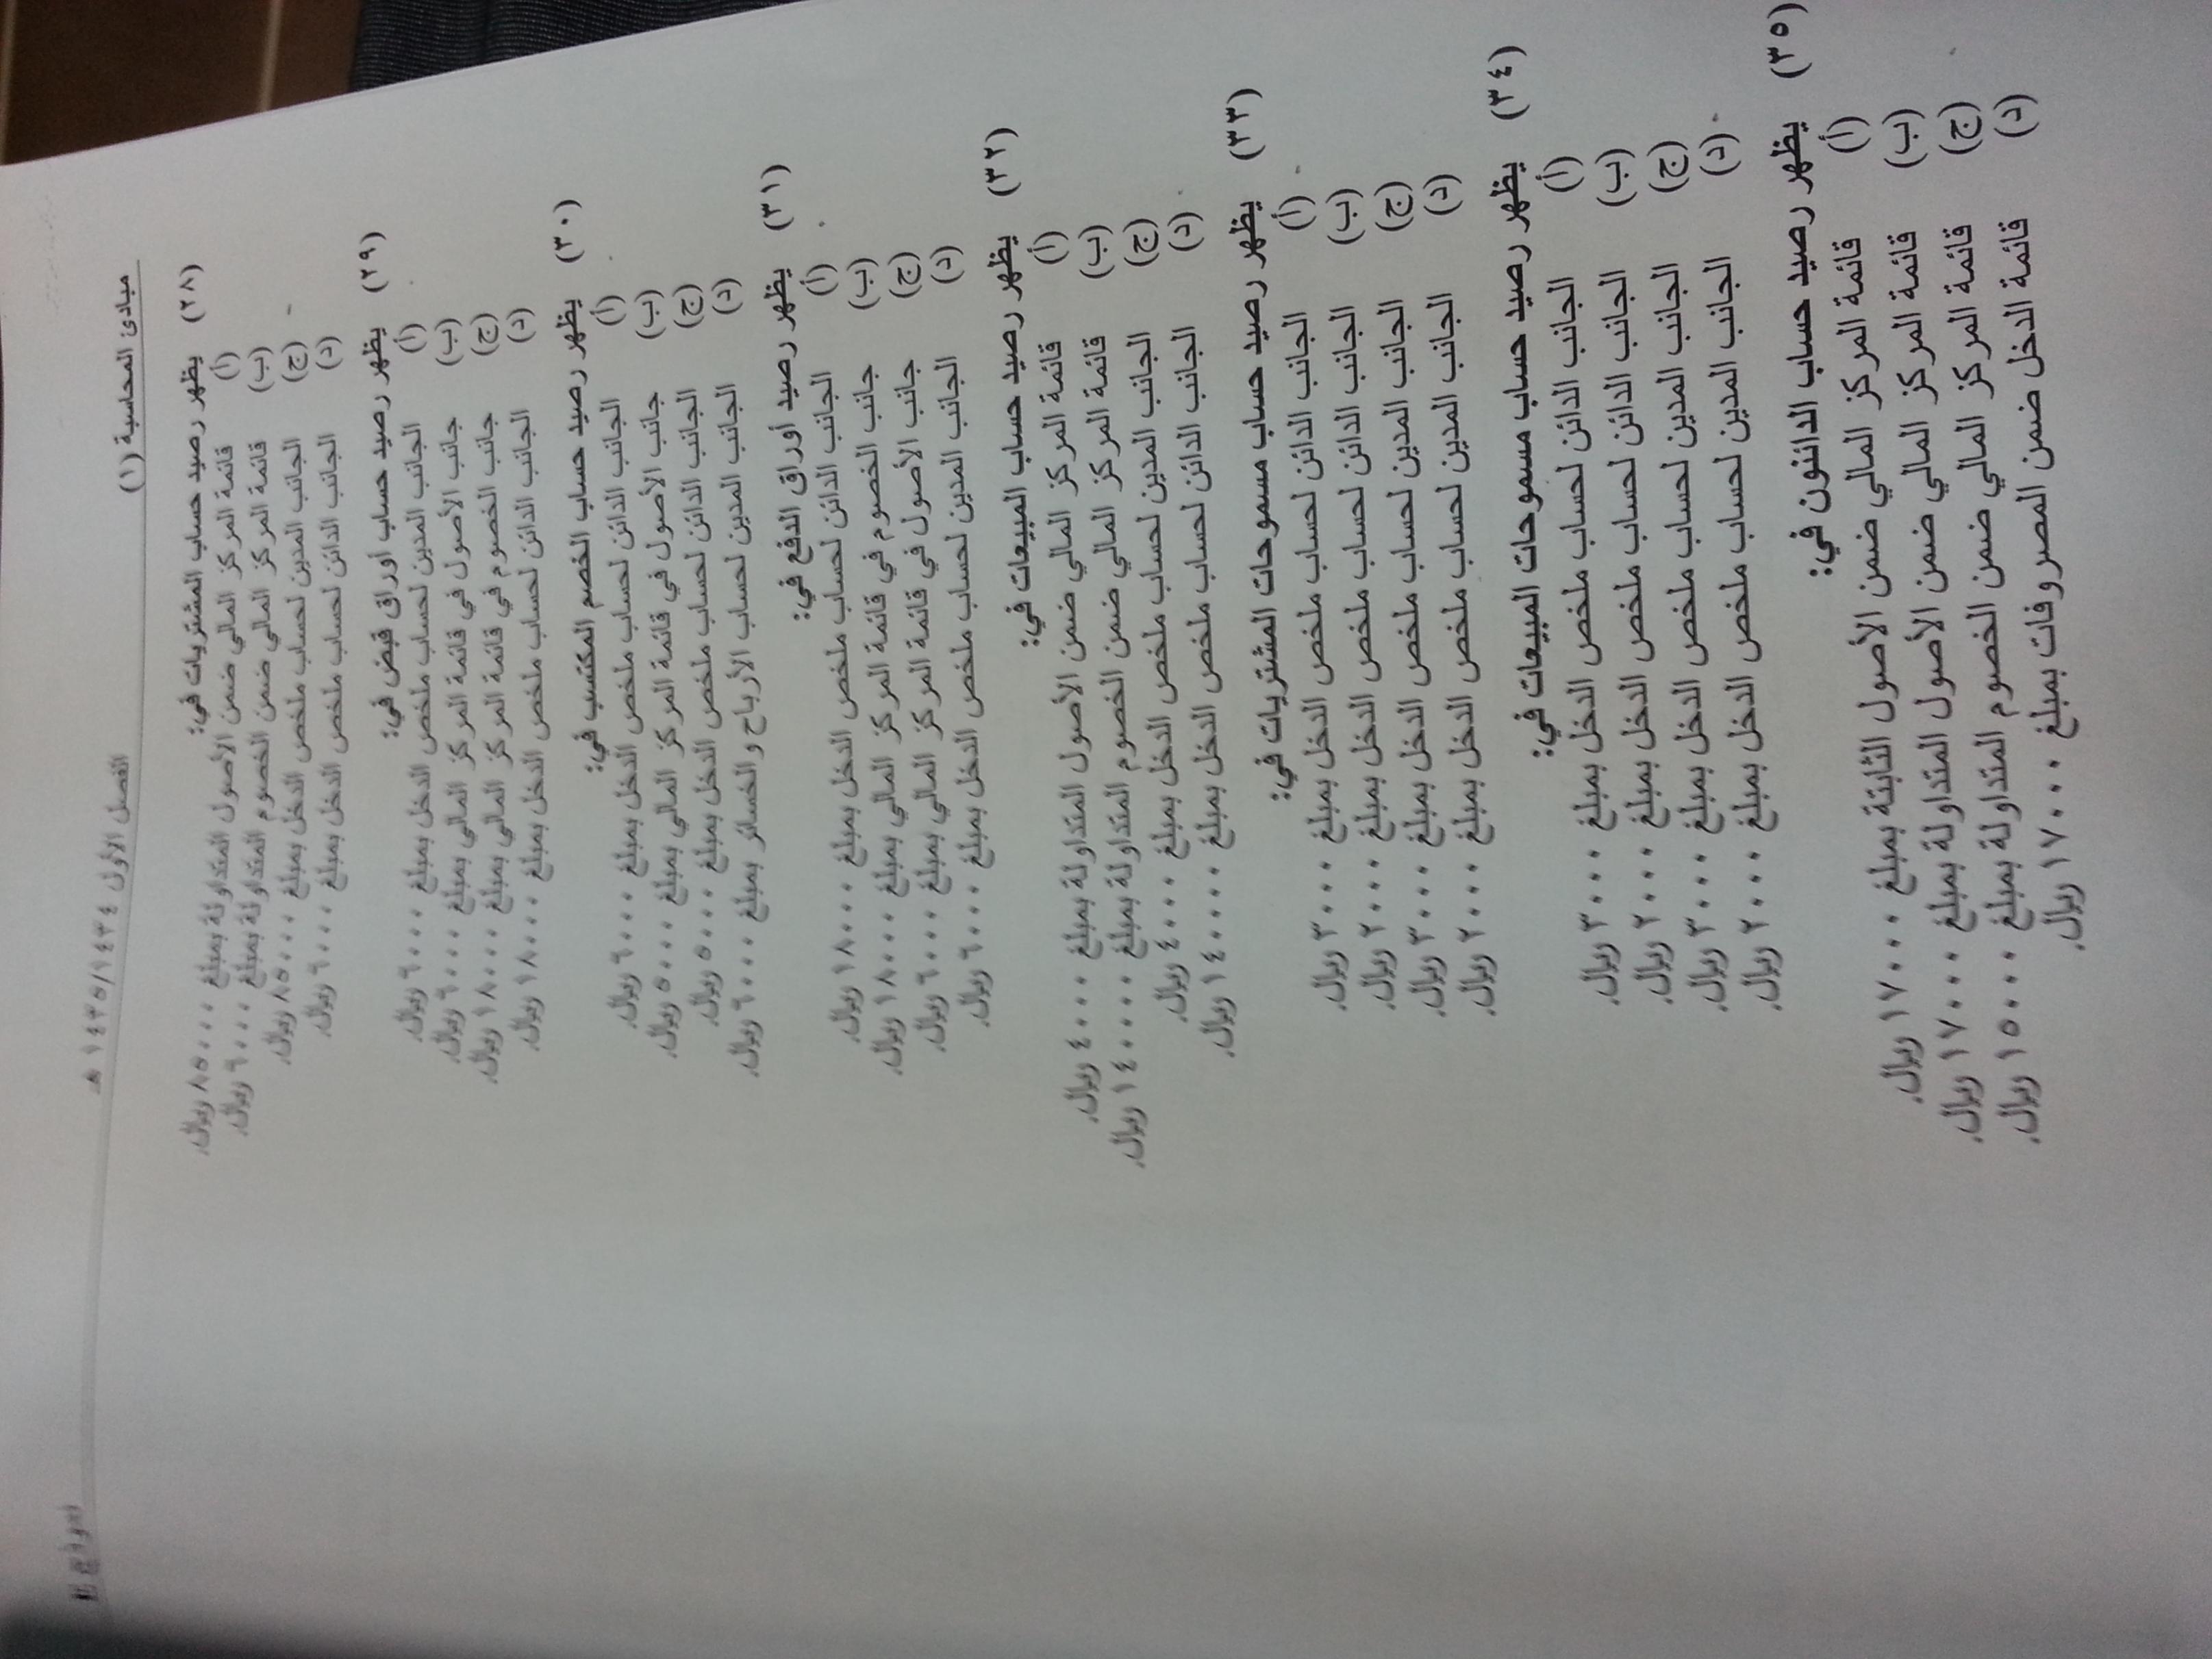 مبادئ المحاسبة (١)
الفصل الأول ١٤٣٥/١٤٣٤ هـ
نموذج
(٢٨) يظهر رصيد حساب المشتريات في:
(أ) قائمة المركز المالي ضمن الأصول المتداولة بمبلغ ٨٥٠٠٠ ريال.
(ب) قائمة المركز المالي ضمن الخصوم المتداولة بمبلغ ٦٠٠٠ ريال.
(ج) الجانب المدين لحساب ملخص الدخل بمبلغ ٨٥٠٠٠ ريال.
(د) الجانب الدائن لحساب ملخص الدخل بمبلغ ٦٠٠٠ ريال.
(٢٩) يظهر رصيد حساب أوراق قبض في:
(أ) الجانب المدين لحساب ملخص الدخل بمبلغ ٦٠٠٠ ريال.
(ب) جانب الأصول في قائمة المركز المالي بمبلغ ٦٠٠٠ ريال.
(ج) جانب الخصوم في قائمة المركز المالي بمبلغ ١٨٠٠٠ ريال.
(د) الجانب الدائن لحساب ملخص الدخل بمبلغ ١٨٠٠٠ ريال.
(٣٠) يظهر رصيد حساب الخصم المكتسب في:
(أ) الجانب الدائن لحساب ملخص الدخل بمبلغ ٦٠٠٠ ريال.
(ب) جانب الأصول في قائمة المركز المالي بمبلغ ٥٠٠٠ ريال.
(ج) الجانب الدائن لحساب ملخص الدخل بمبلغ ٥٠٠٠ ريال.
(د) الجانب المدين لحساب الأرباح والخسائر بمبلغ ٦٠٠٠ ريال.
(٣١) يظهر رصيد أوراق الدفع في:
(أ) الجانب الدائن لحساب ملخص الدخل بمبلغ ١٨٠٠٠ ريال.
(ب) جانب الخصوم في قائمة المركز المالي بمبلغ ١٨٠٠٠ ريال.
(ج) جانب الأصول في قائمة المركز المالي بمبلغ ٦٠٠٠ ريال.
(د) الجانب المدين لحساب ملخص الدخل بمبلغ ٦٠٠٠ ريال.
(٣٢) يظهر رصيد حساب المبيعات في:
(أ) قائمة المركز المالي ضمن الأصول المتداولة بمبلغ ٤٠٠٠ ريال.
(ب) قائمة المركز المالي ضمن الخصوم المتداولة بمبلغ ١٤٠٠٠٠ ريال.
(ج) الجانب المدين لحساب ملخص الدخل بمبلغ ٤٠٠٠ ريال.
(د) الجانب الدائن لحساب ملخص الدخل بمبلغ ١٤٠٠٠٠ ريال.
(٣٣) يظهر رصيد حساب مسموحات المشتريات في:
(أ) الجانب الدائن لحساب ملخص الدخل بمبلغ ٣٠٠٠ ريال.
(ب) الجانب الدائن لحساب ملخص الدخل بمبلغ ٢٠٠٠ ريال.
(ج) الجانب المدين لحساب ملخص الدخل بمبلغ ٣٠٠٠ ريال.
(د) الجانب المدين لحساب ملخص الدخل بمبلغ ٢٠٠٠ ريال.
(٣٤) يظهر رصيد حساب مسموحات المبيعات في:
(أ) الجانب الدائن لحساب ملخص الدخل بمبلغ ٣٠٠٠ ريال.
(ب) الجانب الدائن لحساب ملخص الدخل بمبلغ ٢٠٠٠ ريال.
(ج) الجانب المدين لحساب ملخص الدخل بمبلغ ٣٠٠٠ ريال.
(د) الجانب المدين لحساب ملخص الدخل بمبلغ ٢٠٠٠ ريال.
(٣٥) يظهر رصيد حساب الدائنون في:
(أ) قائمة المركز المالي ضمن الأصول الثابتة بمبلغ ١٧٠٠٠ ريال.
(ب) قائمة المركز المالي ضمن الأصول المتداولة بمبلغ ١٧٠٠٠ ريال.
(ج) قائمة المركز المالي ضمن الخصوم المتداولة بمبلغ ١٥٠٠٠ ريال.
(د) قائمة الدخل ضمن المصروفات بمبلغ ١٧٠٠٠ ريال.